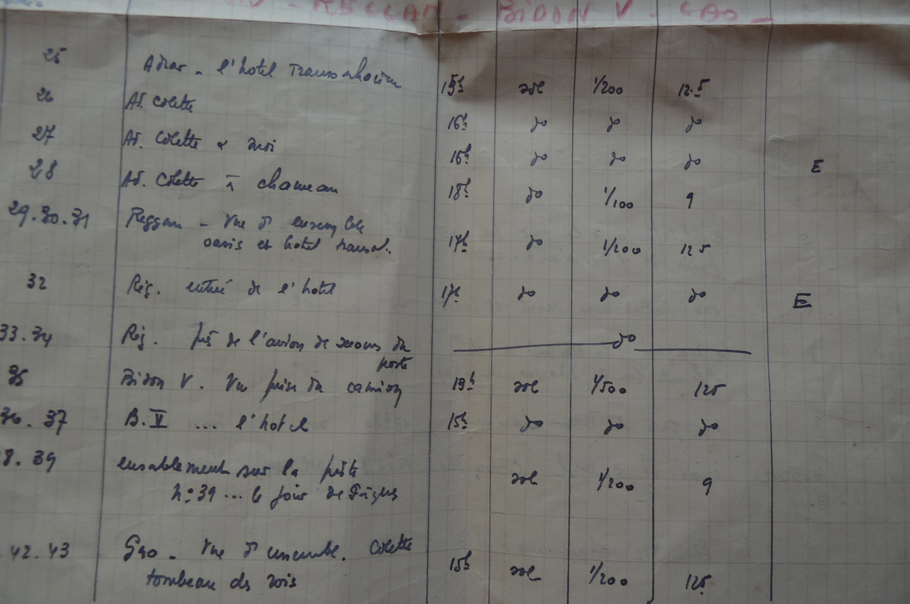 REGGAN - BIDON V - GAO -
25 Adrar - l'hotel Transsaharien 15h sol 1/200 12.5
26 Ad. Colette 16h do do do
27 Ad. Colette & moi 16h do do do E
28 Ad. Colette à chameau 18h do 1/100 9
29.30.31 Reggan - Vue d'ensemble
oasis et hotel transat. 17h do 1/200 125
32 Reg. entrée de l'hotel 17h do do do E
33.34 Reg. près de l'avion de secours du do
poste
35 Bidon V. Vue prise du camion 19h sol 1/500 125
36.37 B.V ... l'hotel 15h do do do
8.39 ensablement sur la piste
n° 39 ... le jour de Pâques sol 1/200 9
42.43 Gao - Vue d'ensemble. Colette
tombeau des rois 15h sol 1/200 125